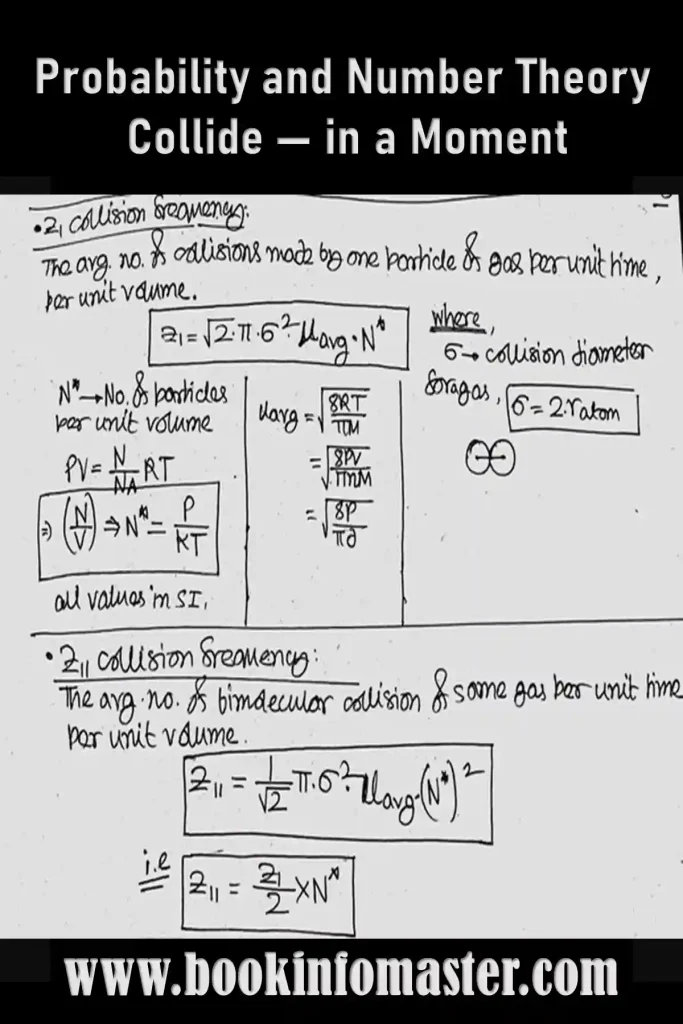 Probability and Number Theory
Collide — in a Moment
• Z₁ collision frequency:
The avg. no. of collisions made by one particle of gas per unit time,
per unit volume.
Z₁ = √2·π·σ²·μavg·N*
where,
σ → collision diameter
for a gas, σ = 2·ratom
N* → No. of particles
per unit volume
PV = N/NA RT
⇒ (N/V) ⇒ N* = P/KT
all values in SI,
μavg = √(8RT/πM)
= √(8PV/πnM)
= √(8P/π∂)
• Z₁₁ collision frequency:
The avg. no. of bimolecular collision of same gas per unit time
per unit volume.
Z₁₁ = 1/√2 π·σ²·μavg·(N*)²
i.e
Z₁₁ = Z₁/2 × N*
www.bookinfomaster.com